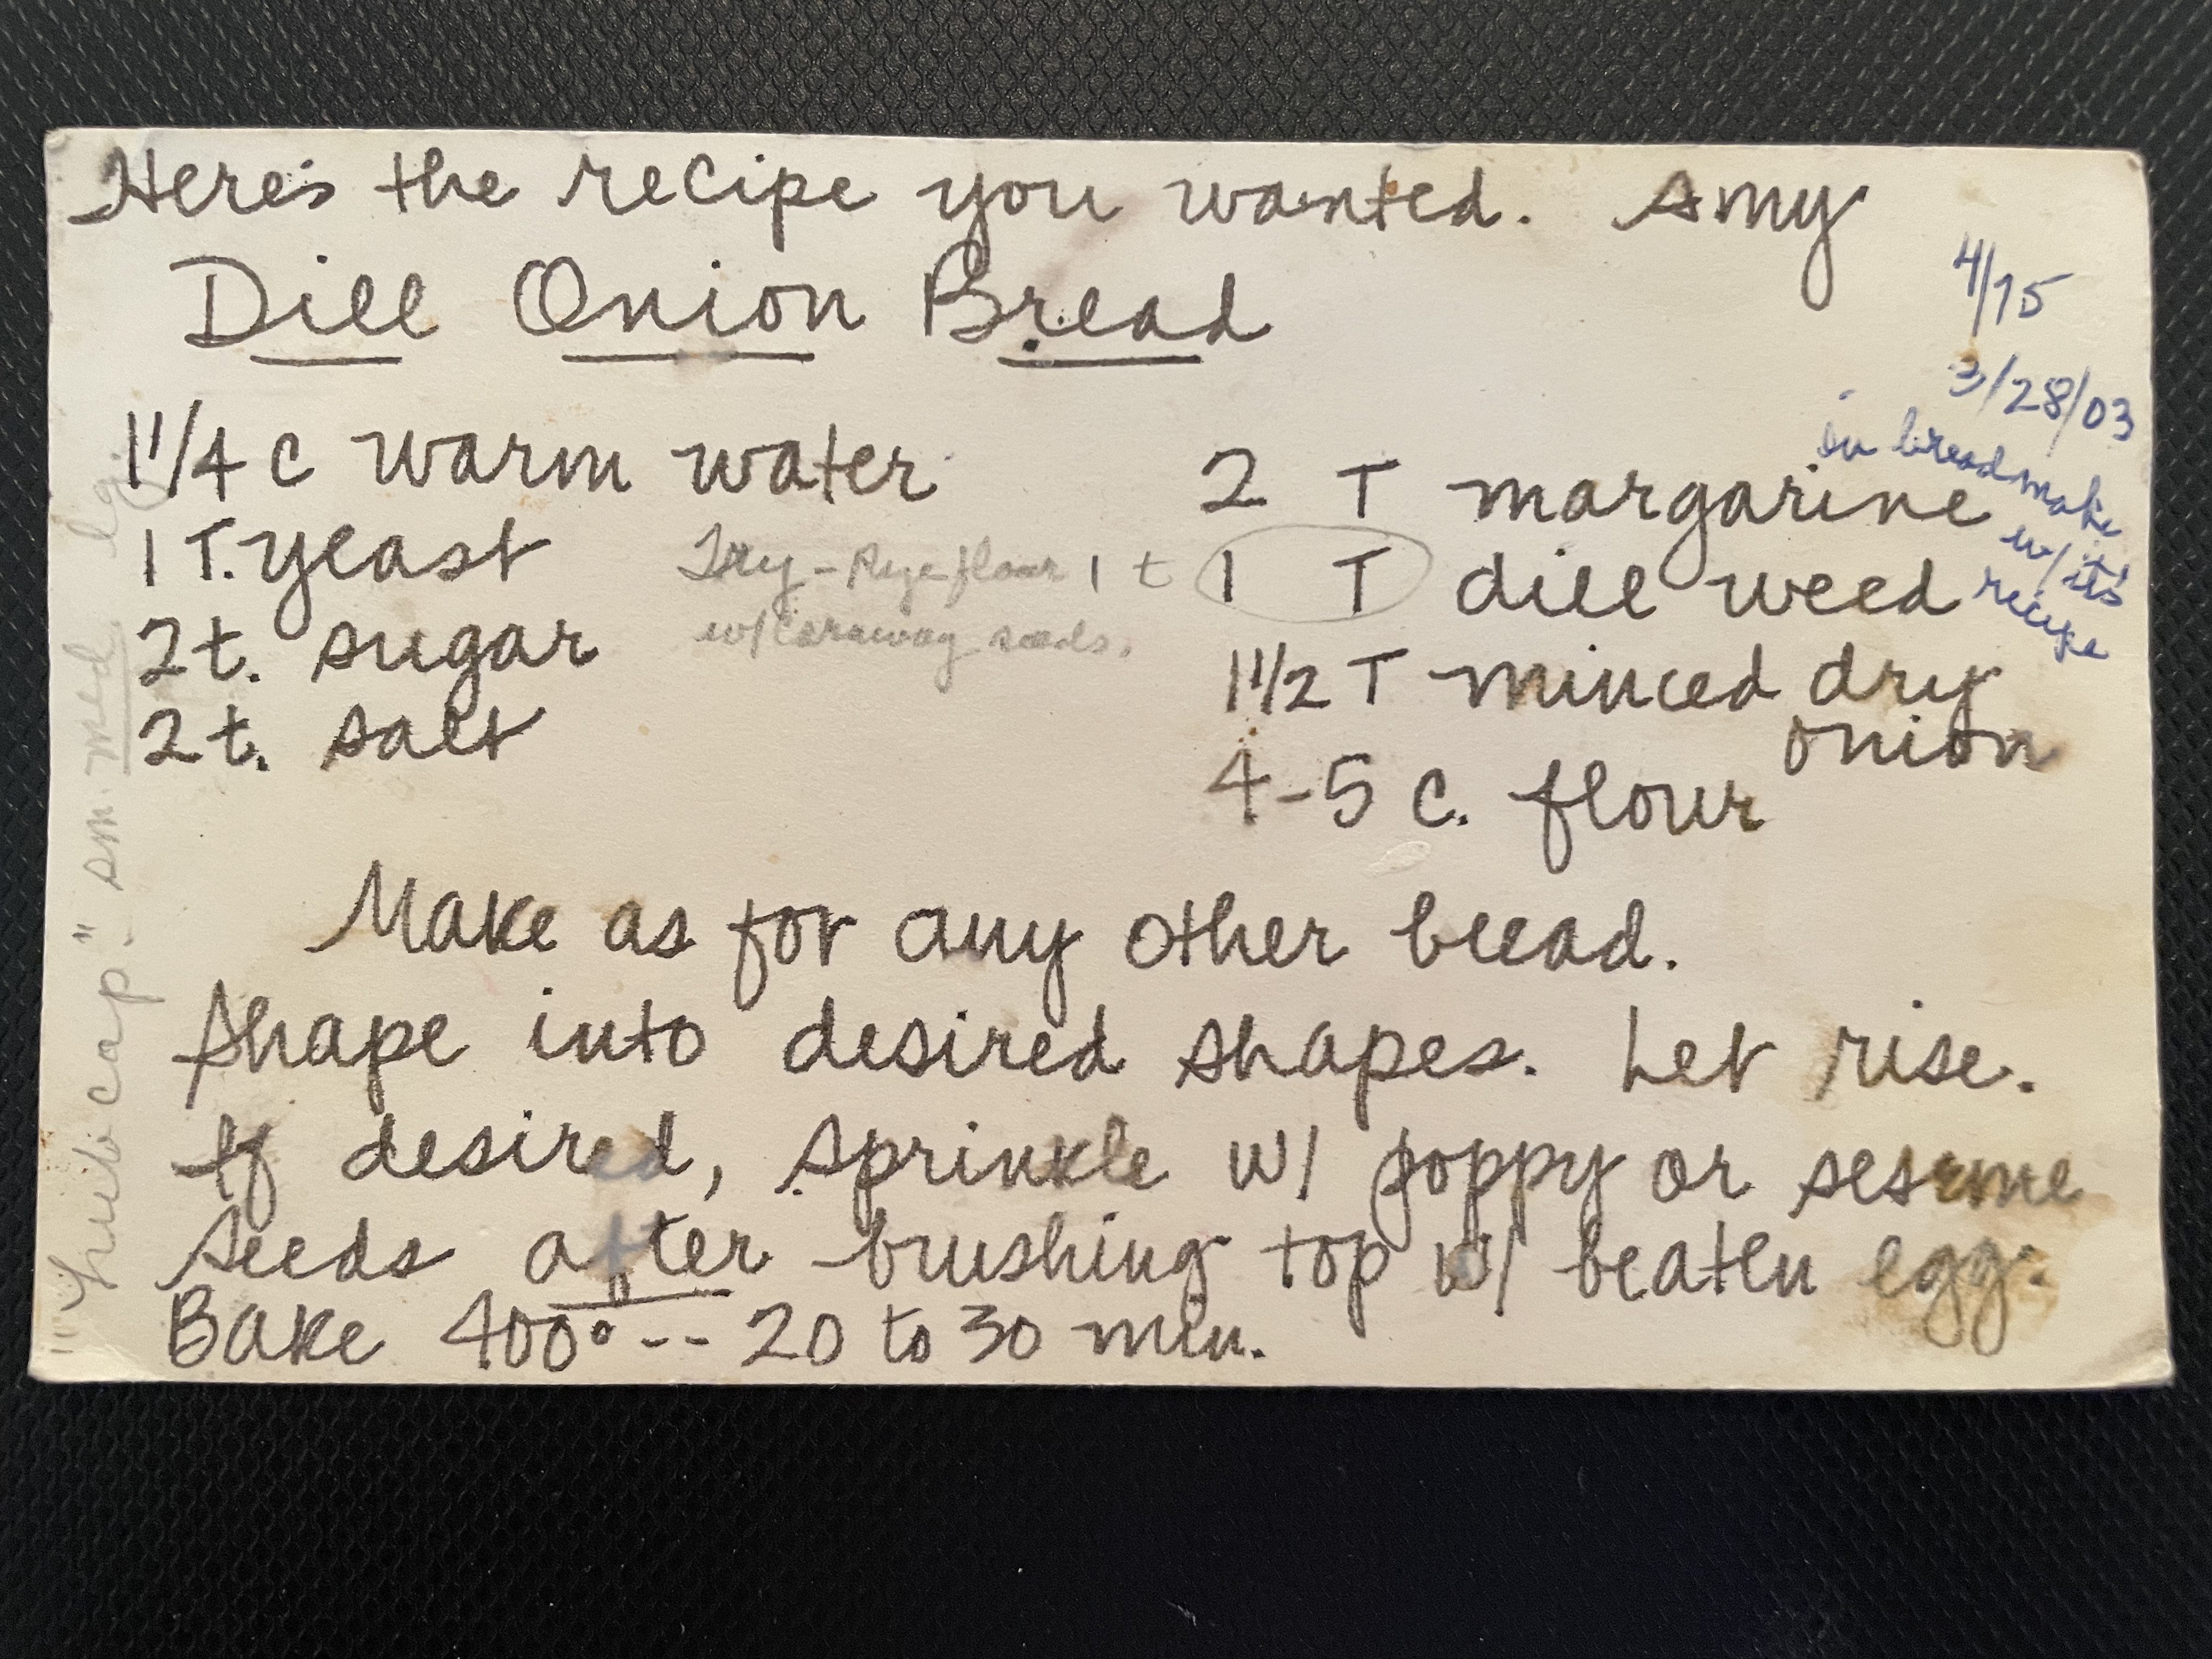 Here's the recipe you wanted. Amy
Dill Onion Bread
4/75
3/28/03
in breadmake
w/ it's
recipe
1 1/4 c warm water
1 T. yeast
2 t. sugar
2 t. salt
Try - Rye flour
w/ caraway seeds.
2 T margarine
1 t 1 T dill weed
1 1/2 T minced dry
onion
4-5 c. flour
Make as for any other bread.
Shape into desired shapes. Let rise.
If desired, sprinkle w/ poppy or sesame
seeds after brushing top w/ beaten egg.
Bake 400° -- 20 to 30 min.
"hub cap" - sm. med lg.